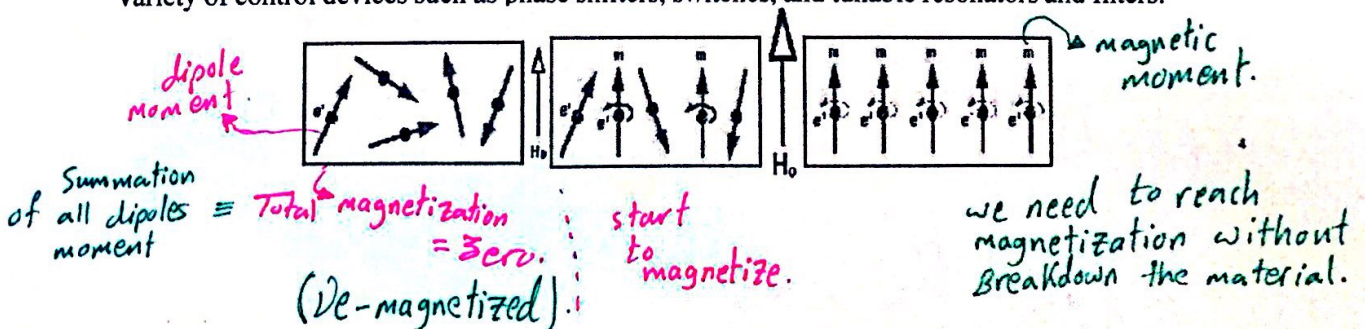 variety of control devices such as phase shifters, switches, and tunable resonators and filters.
dipole
moment
e'
H₀
m m
e' e'
H₀
m m m m m
e' e' e' e' e'
magnetic
moment.
Summation
of all dipoles ≡ Total magnetization
moment
= Zero.
(De-magnetized).
start
to
magnetize.
we need to reach
magnetization without
Breakdown the material.